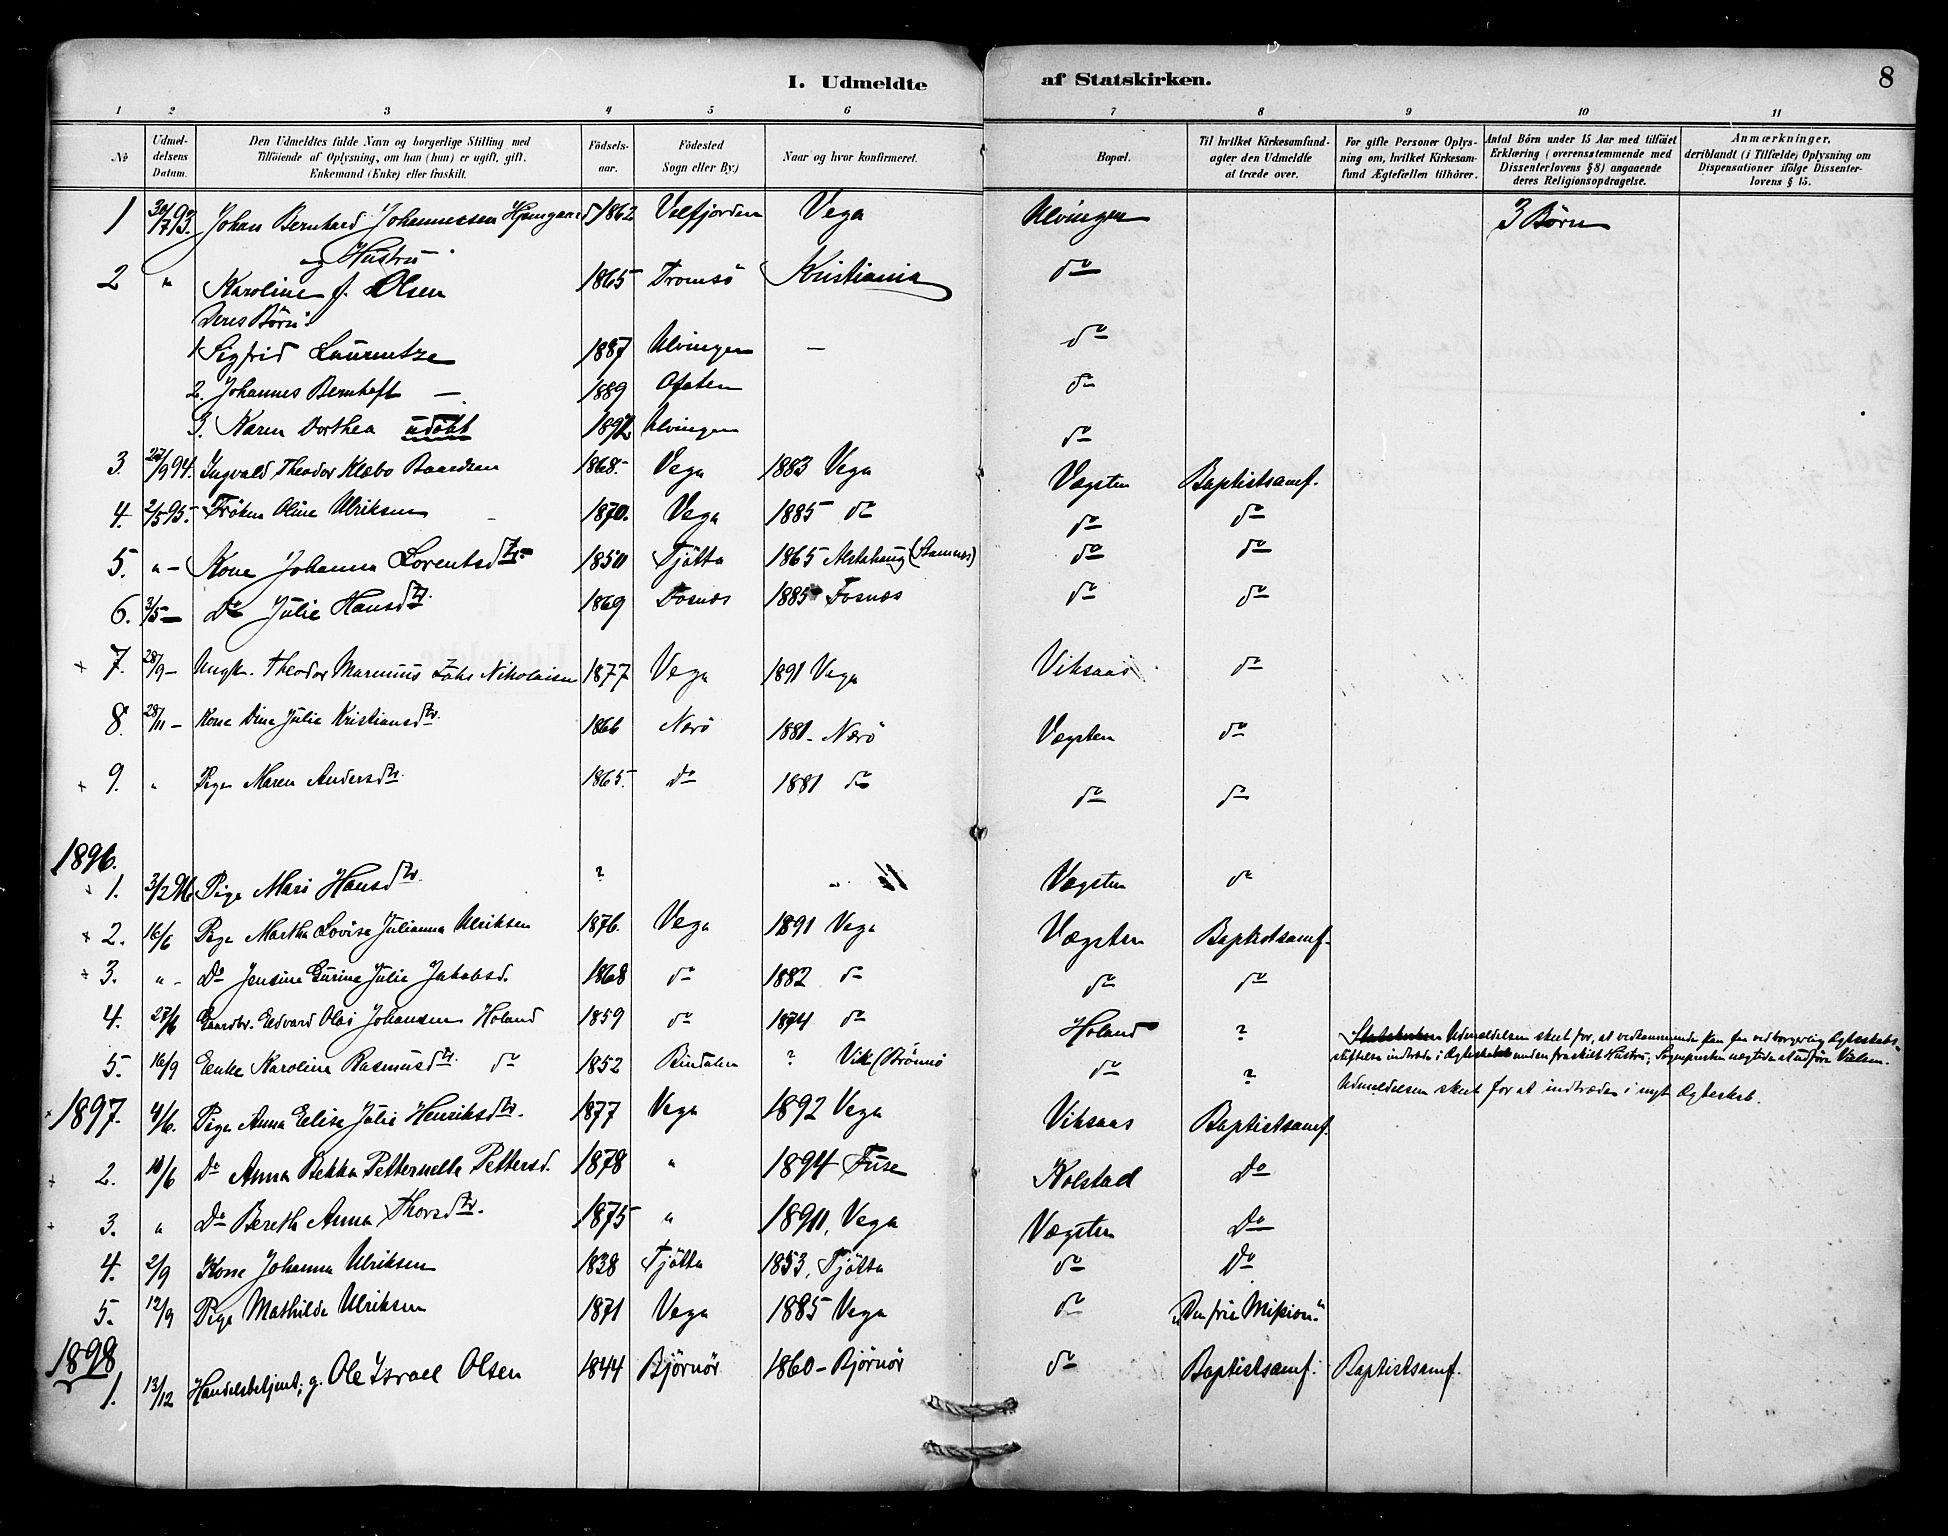 I. Udmeldte af Statskirken. 8
1 2 3 4 5 6 7 8 9 10 11
No
Udmel-
delsens
Datum.
Den Udmeldtes fulde Navn og borgerlige Stilling med
Tilföiende af Oplysning, om han (hun) er ugift, gift,
Enkemand (Enke) eller fraskilt.
Födsels-
aar.
Födested
Sogn eller By.)
Naar og hvor konfirmeret.
Bopæl.
Til hvilket Kirkesamfund-
agter den Udmeldte
at træde over.
For gifte Personer Oplys-
ning om, hvilket Kirkesam-
fund Ægtefællen tilhörer.
Antal Börn under 15 Aar med tilföiet
Erklæring (overensstemmende med
Dissenterlovens § 8) angaaende
deres Religionsopdragelse.
Anmærkninger,
deriblandt (i Tilfælde) Oplysning om
Dispensationer ifölge Dissenter-
lovens § 15.
1 30/7 93. Johan Bernhard Johannessen 1862 Velfjorden Vega Ulvingen 3 Börn
og Hustru
2 " Karoline f. Olsen 1865 Tromsö Kristiania do
Deres Börn:
1 Sigfrid Laurentze 1887 Ulvingen — do
2. Johannes Bernhoft — 1889 Ofoten do
3. Karen Dorthea udöbt 1892 Ulvingen do
3. 27/9 94. Ingvald Theodor Klæbo Baardsen 1868. Vega 1883 Vega Vægsten Baptistsamf.
4. 2/5 95. Fröken Oline Ulriksen 1870. Vega 1885 do do do
5. " — Kone Johanna Lorentsdtr 1850 Tjötta 1865 Alstahaug (Stamnes) do do
6. 3/5 — Do Julie Hansdtr. 1869 Fosnæs 1885 Fosnæs do do
+ 7. 28/9 — Ungk. Theodor Marinius Nikolaisen 1877 Vega 1891 Vega Viksaas do
8. 28/11 — Kone Dina Julie Kristiansdtr. 1866 Nærö 1881 - Nærö Vægsten do
+ 9. " Pige Maren Andersdtr. 1865. do 1881 do do do
1896.
+ 1. 3/2 96 Pige Mari Hansdtr. ? " Vægsten do
+ 2. 16/6 Pige Martha Lovise Julianna Ulriksen 1876. Vega 1891 Vega Vægsten Baptistsamf.
+ 3. " - Do Jensine Gurine Julie Jakobsd. 1868 do 1882 do do do
4. 27/6 Gaardbr. Edvard Olai Johansen Holand 1859 do 1874 do Holand ? Udmeldelsen skeet for, at vedkommende kan faa ved borgerlig Ægteskabs-
stiftelse indtræde i Ægteskab uden fraskilt Hustru; Sognepresten negtede at udföre Vielsen.
5. 16/9 Enke Karoline Rasmusdtr. do 1852 Bindalen ? Vik (Brönnö do ? Udmeldelsen skeet for at indtræde i nyt Ægteskab.
+ 1897. 4/6. Pige Anna Elisa Julie Henriksdtr. 1877 Vega 1892 Vega Viksaas Baptistsamf.
+ 2. 10/6 Do Anna Bekka Petternella Pettersd. 1878 " 1894 Fuse Kolstad Do
+ 3. " Do Bereth Anna Thorsdtr. 1875 " 1890, Vega Vægsten Do
4. 2/9 Kone Johanna Ulriksen 1838 Tjötta 1853, Tjötta do Do
5. 12/9 Pige Mathilde Ulriksen 1871 Vega 1885 Vega do "Den frie Mission"
1898
1. 13/12 Handelsbetjent, g. Ole Israel Olsen 1844 Björnör 1860 - Björnör do Baptistsamf. Baptistsamf.